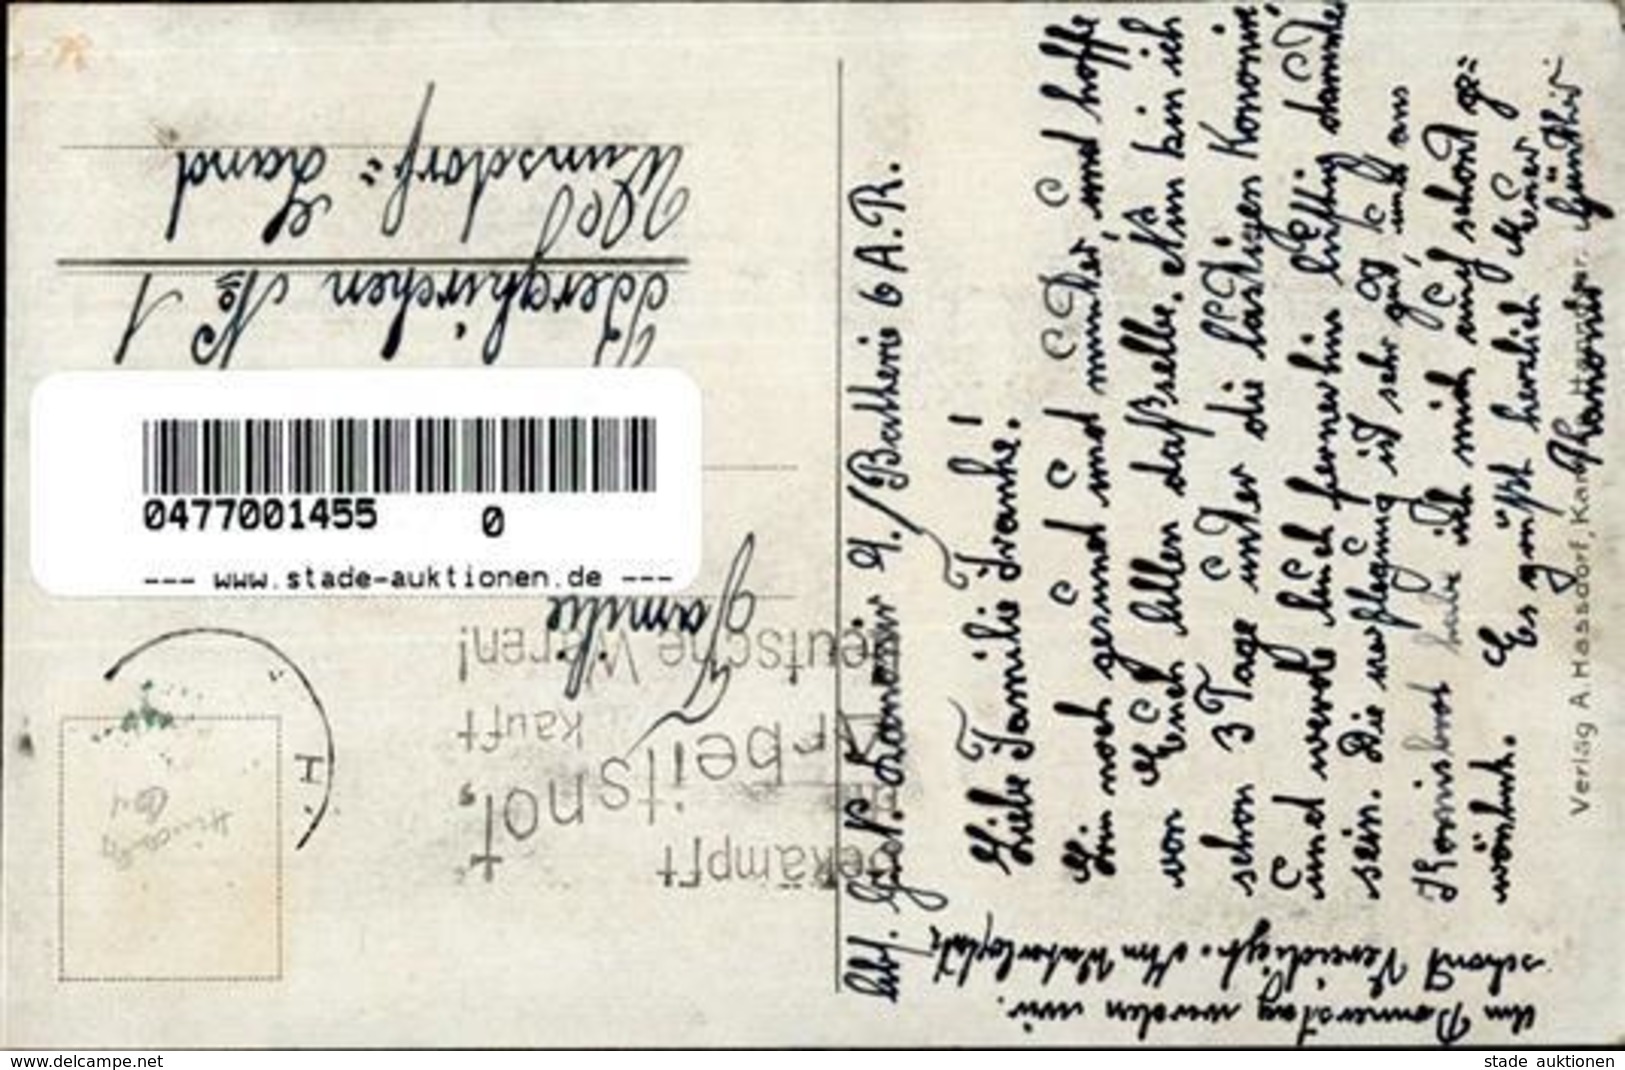 Abs. Kanonier A./Batterie 6 A.R.
Liebe Familie Franke!
Bin noch gesund und munter und hoffe
von Euch allen daßselbe. Nun bin ich
schon 3 Tage unter die lästigen Kanonier
und werde auch fernerhin lustig darunter
sein. Die verpflegung ist sehr gut, und ans
Komisbrot habe ich mich auch schont ge=
wöhnt. Es grüßt herzlich Euer
Kanonier Günther
Am Donnerstag werden wir
schont Vereidigt. Am Waterloplatz
Familie
Bergkirchen No 1
Post
Wunsdorf=Land
bekämpft
Arbeitsnot,
kauft
deutsche Waren!
H
Verlag A. Hassdorf, Kamp
0477001455 0
--- www.stade-auktionen.de ---
www.delcampe.net
stade auktionen